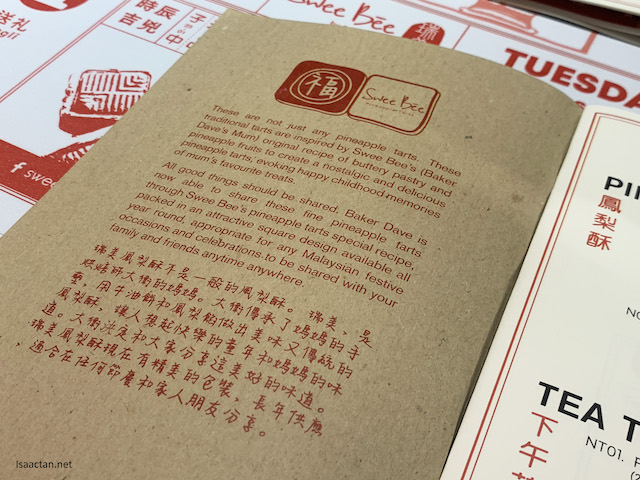 送礼
時辰
吉兇
子
中
Swee Bee
TUESDA
福
Swee Bee
These are not just any pineapple tarts. These
traditional tarts are inspired by Swee Bee's (Baker
Dave's Mum) original recipe of buttery pastry and
pineapple fruits to create a nostalgic and delicious
pineapple tarts, evoking happy childhood memories
of mum's favourite treats.
All good things should be shared. Baker Dave is
now able to share these fine pineapple tarts
through Swee Bee's pineapple tarts special recipe,
packed in an attractive square design available all
year round, appropriate for any Malaysian festive
occasions and celebrations to be shared with your
family and friends anytime anywhere.
瑞美鳳梨酥不是一般的鳳梨酥。瑞美，是
烘焙師大衛的媽媽。大衛傳承了媽媽的手
藝，用牛油餅和鳳梨餡做出美味又傳統的
鳳梨酥，讓人想起快樂的童年和媽媽的味
道。大衛決定和大家分享這美好的味道。
瑞美鳳梨酥現在有精美的包裝，長年供應
，適合在任何節慶和家人朋友分享。
swe
PI
鳳梨酥
NO
TEA T
下午
NT01. F
Isaactan.net